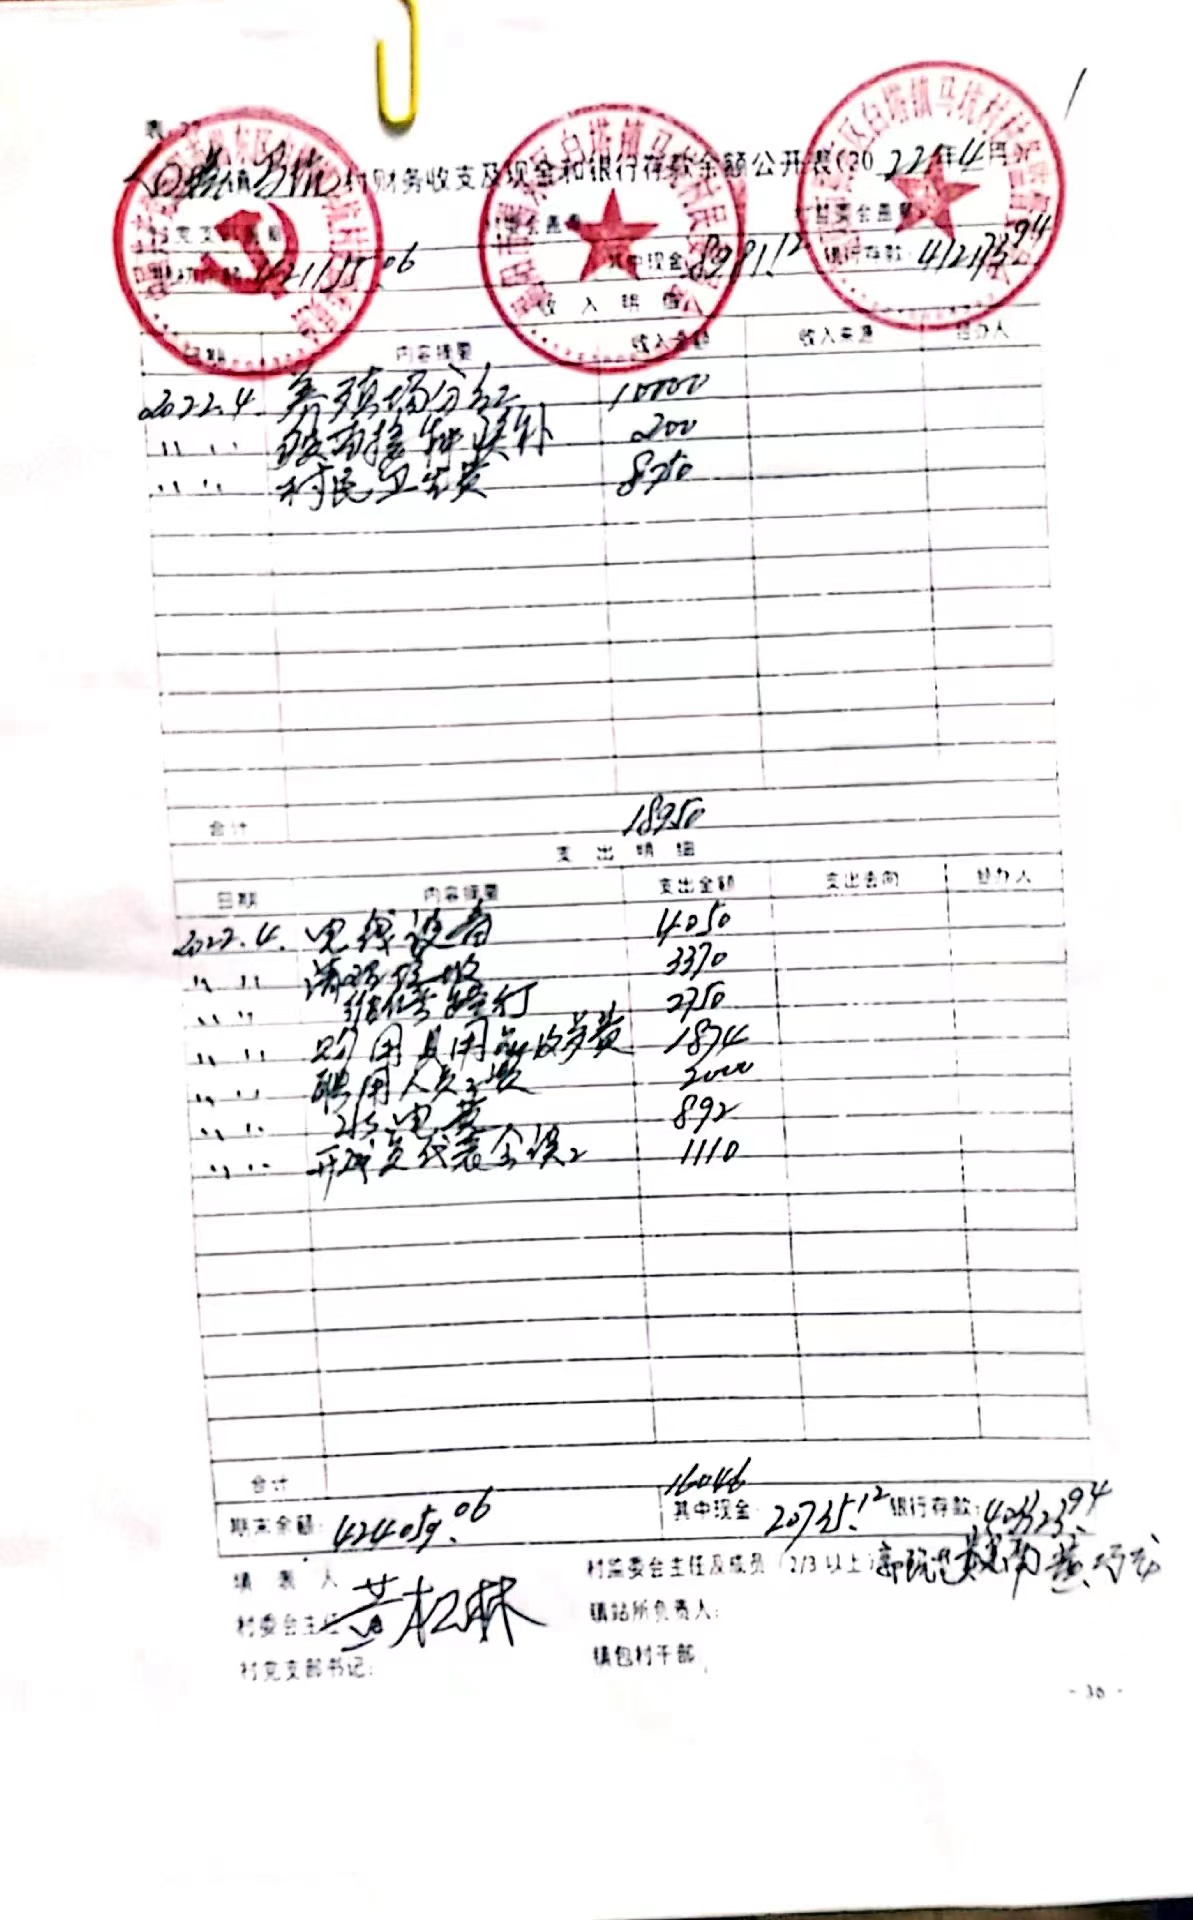 白塔镇马坑村财务收支及现金和银行存款余额公开表(2022年4月
421155.06 其中现金:8981.12 银行存款:412173.94
收入明细
日期 内容摘要 收入金额 收入来源 经办人
2022.4. 养殖场分红 10000
〃 〃 接种误补 200
〃 〃 村民卫生费 8750
合计 18950
支出明细
日期 内容摘要 支出金额 支出去向 经办人
2022.4. 电线设备 4050
〃 〃 3370
〃 〃 2750
〃 〃 购用具用品收劳费 1874
〃 〃 聘用人员工资 2000
〃 〃 水电费 892
〃 〃 开成员代表会误工 1110
合计 16046
期末余额:424059.06 其中现金: 20735.12 银行存款:403323.94
填表人 村监委会主任及成员(2/3以上)
村委会主任 黄松林 镇站所负责人:
村党支部书记: 镇包村干部
- 36 -